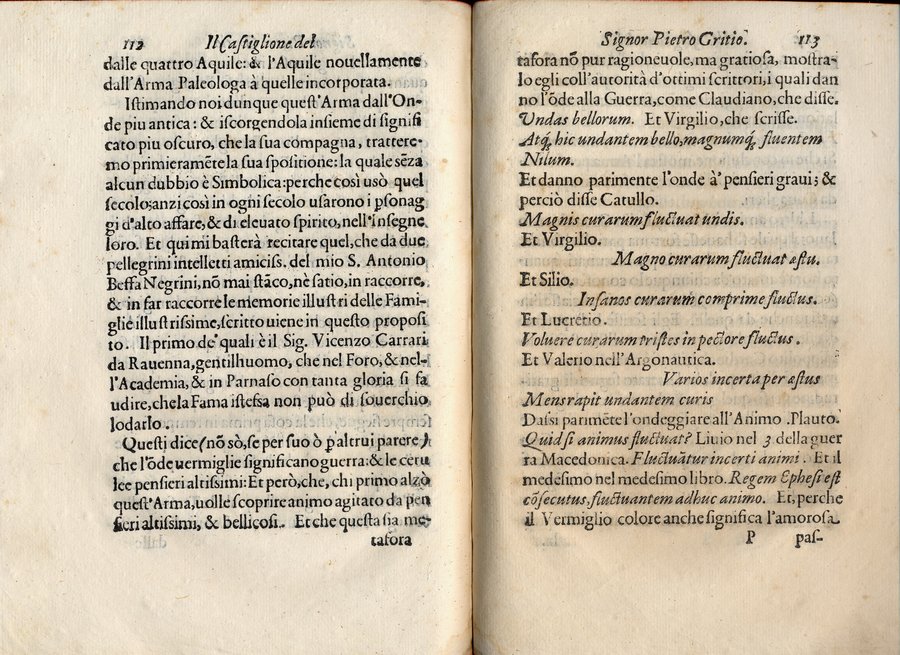 112 Il Castiglione del
dalle quattro Aquile: & l'Aquile nouellamente
dall'Arma Paleologa à quelle incorporata.
Istimando noi dunque quest'Arma dall'On-
de piu antica: & iscorgendola insieme di signifi
cato piu oscuro, che la sua compagna, trattere-
mo primieramēte la sua spositione: la quale sēza
alcun dubbio è Simbolica: perche così usò quel
secolo; anzi così in ogni secolo usarono i psonag
gi d'alto affare, & di eleuato spirito, nell'insegne
loro. Et qui mi basterà recitare quel, che da due
pellegrini intelletti amiciss. del mio S. Antonio
Beffa Negrini, nō mai stāco, nè satio, in raccorre,
& in far raccorre le memorie illustri delle Fami-
glie illustrissime, scritto uiene in questo proposi
to. Il primo de' quali è il Sig. Vicenzo Carrari
da Rauenna, gentilhuomo, che nel Foro, & nel-
l'Academia, & in Parnaso con tanta gloria si fa
udire, che la Fama istessa non può di souerchio
lodarlo.
Questi dice (nō sò, se per suo ò p altrui parere)
che l'ōde vermiglie significano guerra: & le ceru
lee pensieri altissimi: Et però, che, chi primo alzò
quest'Arma, uolle scoprire animo agitato da pen
sieri altissimi, & bellicosi. Et che questa sia me-
tafora
Signor Pietro Gritio. 113
tafora nō pur ragioneuole, ma gratiosa, mostra-
lo egli coll'autorità d'ottimi scrittori, i quali dan
no l'ōde alla Guerra, come Claudiano, che disse.
Undas bellorum. Et Virgilio, che scrisse.
Atq; hic undantem bello, magnumq; fluentem
Nilum.
Et danno parimente l'onde à' pensieri graui; &
perciò disse Catullo.
Magnis curarum fluctuat undis.
Et Virgilio.
Magno curarum fluctuat æstu.
Et Silio.
Insanos curarum comprime fluctus.
Et Lucretio.
Voluere curarum tristes in pectore fluctus.
Et Valerio nell'Argonautica.
Varios incerta per æstus
Mens rapit undantem curis
Dassi parimēte l'ondeggiare all'Animo. Plauto.
Quid si animus fluctuat? Liuio nel 3 della guer
ra Macedonica. Fluctuātur incerti animi. Et il
medesimo nel medesimo libro. Regem Ephesi est
cōsecutus, fluctuantem adhuc animo. Et, perche
il Vermiglio colore anche significa l'amorosa
P pas-